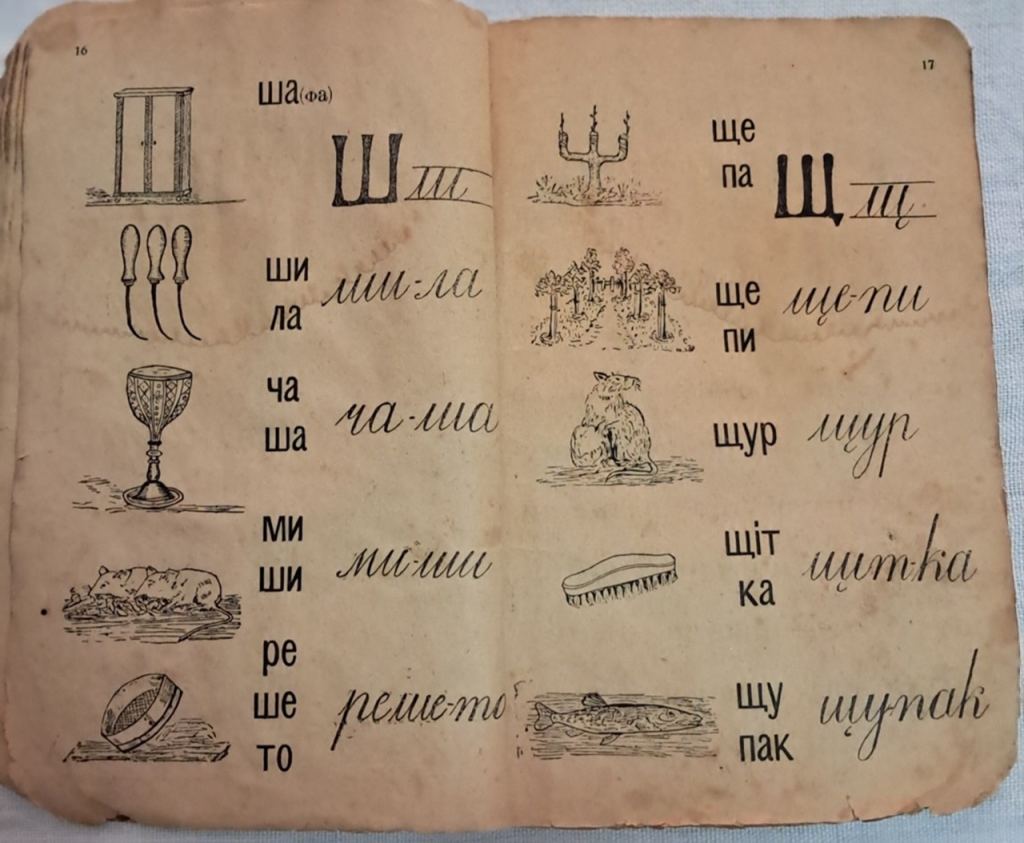 16
ша(фа)
Ш ш
ши
ла
ши-ла
ча
ша
ча-ша
ми
ши
ми-ши
ре
ше
то
реше-то
17
ще
па
Щ щ
ще
пи
ще-пи
щур
щур
щіт
ка
щіт-ка
щу
пак
щу-пак